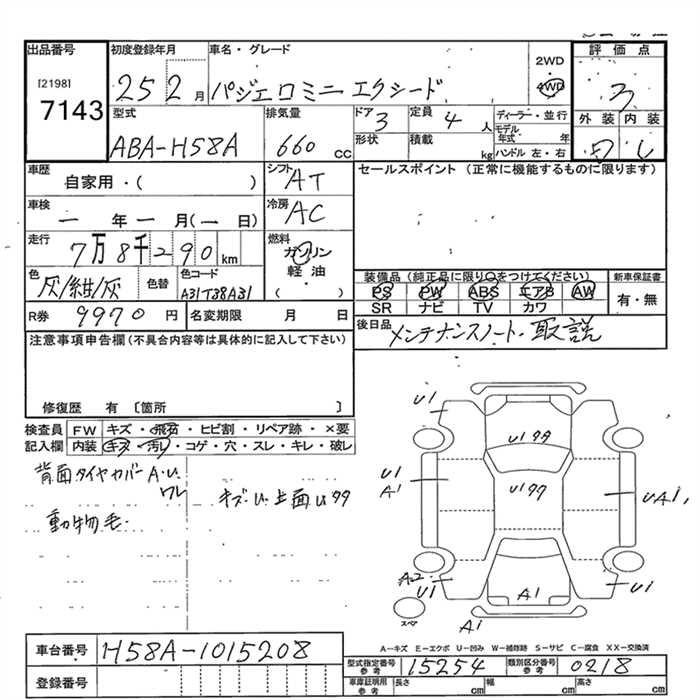 出品番号 初度登録年月 車名・グレード 評価点
[2198] 7143
25 2月 パジェロミニ エクシード 2WD 4WD 3
型式 排気量 ドア 3 定員 4人 ディーラー・並行 外装 内装
ABA-H58A 660cc 形状 積載 kg モデル年式 年 ハンドル 左・右
車歴 自家用・( ) シフト AT セールスポイント (正常に機能するものに限ります)
車検 一年一月(一日) 冷房 AC
走行 7万8千290km 燃料 ガソリン 軽油 ( )
色 灰/紺/灰 色替 色コード A31T38A31
装備品 (純正品に限り○をつけてください) 新車保証書
PS PW ABS エアB AW 有・無
SR ナビ TV カワ
R券 9970円 名変期限 月 日
後日品 メンテナンスノート・取説
注意事項申告欄(不具合内容等は具体的に記入して下さい)
修復歴 有 [箇所 ]
検査員記入欄 FW キズ・飛石・ヒビ割・リペア跡・×要
内装 キズ・汚レ・コゲ・穴・スレ・キレ・破レ
背面タイヤカバーA・U
ワレ
キズU 上面U99
動物毛・
U1
U199
U1
A1
U199
UA1
A2
U1
A1
U1
スペア
A1
A-キズ E-エクボ U-凹み W-補修跡 S-サビ C-腐食 XX-交換済
車台番号 H58A-1015208
型式指定番号 参考 15254 類別区分番号 参考 0218
登録番号
車庫証明用 参考 長さ cm 幅 cm 高さ cm